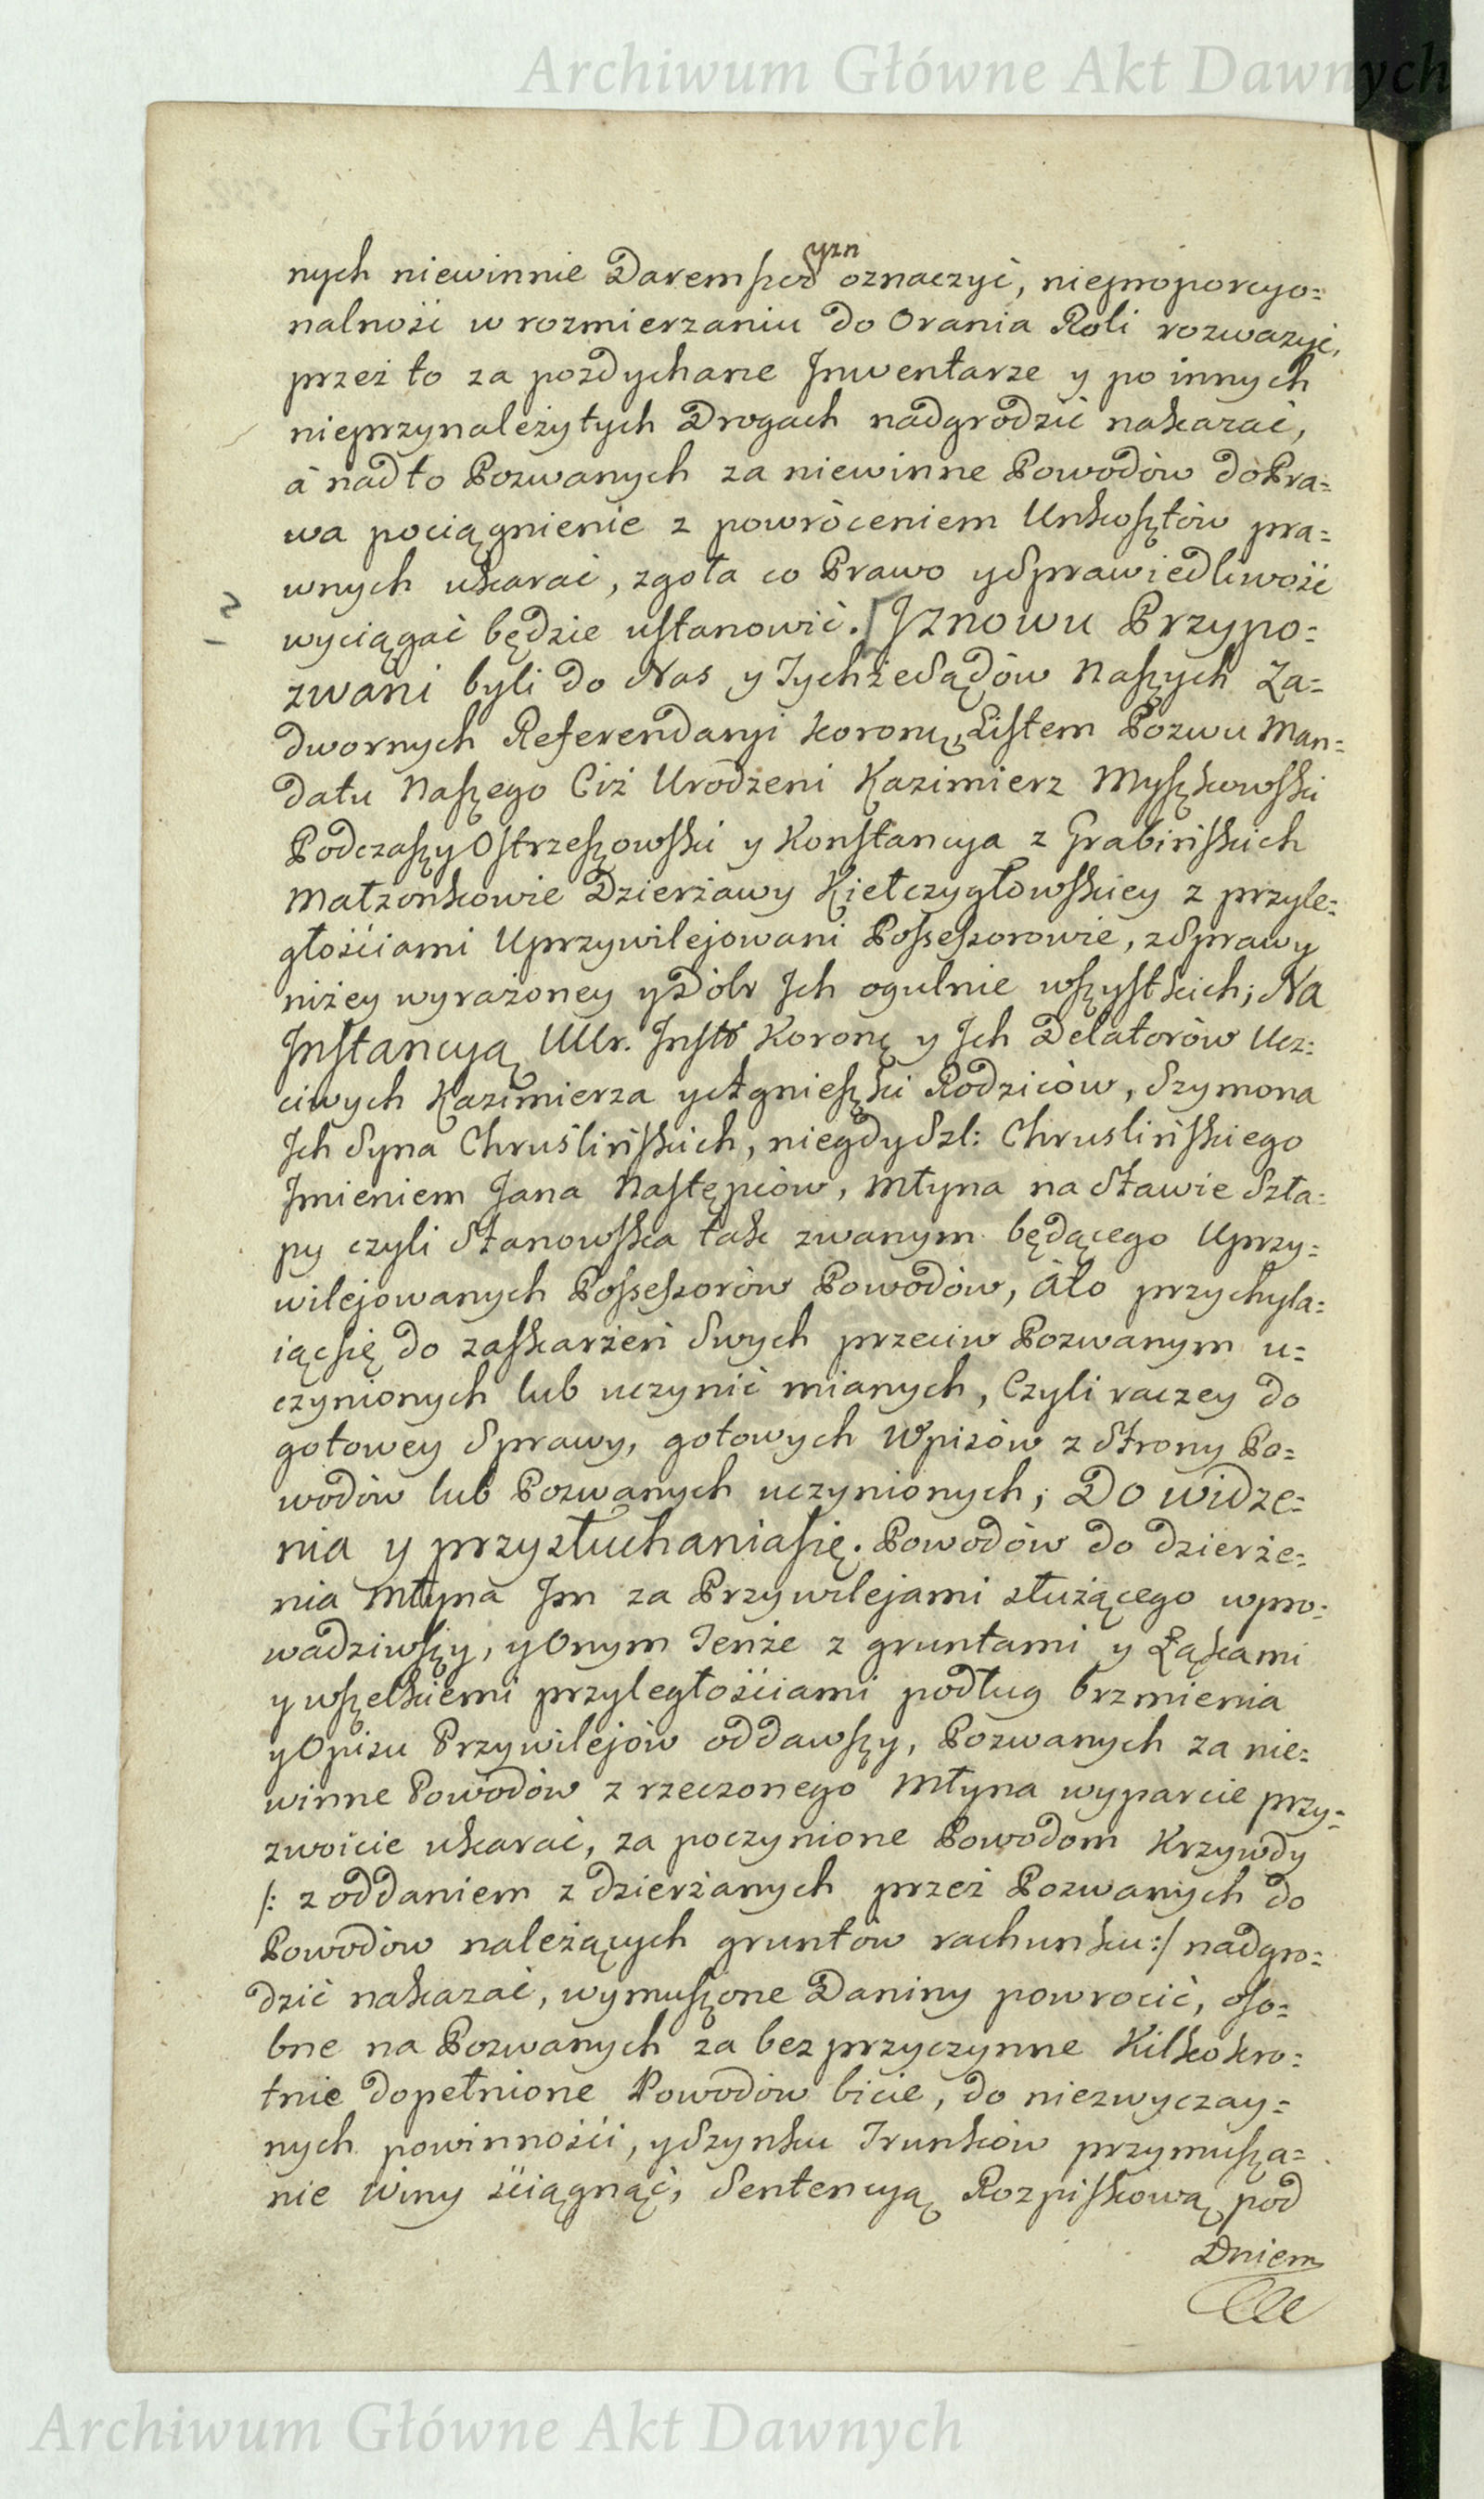 Archiwum Główne Akt Dawnych
nych niewinnie Daremszczyzn oznaczyć, nieproporcyo=
nalność w rozmierzaniu do Orania Roli rozwazyć,
przez to za pozdychane Jnwentarze y po innych
nieprzynależytych Drogach nadgrodzić nakazać,
à nadto Pozwanych za niewinne Powodów do Pra=
wa pociągnienie z powróceniem Unkosztów pra=
wnych ukarać, zgoła co Prawo y Sprawiedliwość
wyciągać będzie ustanowić. [Jznowu Przypo=
zwani byli do Nas y Tychże Sądów Naszych Za=
dwornych Referendaryi koronney Listem Pozwu Man=
datu Naszego Ciż Urodzeni Kazimierz Myszkowski
Podczaszy Ostrzeszowski y Konstancya z Grabińskich
Małżonkowie Dzierżawy Kiełczygłowskiey z przyle=
głościami Uprzywilejowani Possessorowie, z Sprawy
niżey wyrażoney y Dóbr Jch ogulnie wszystkich; Na
Jnstancyą UUr. Jnstt Koronę y Jch Delatorów Ucz=
ciwych Kazimierza y Agnieszki Rodziców, Szymona
Jch Syna Chruślińskich, niegdy Szl: Chruslińskiego
Jmieniem Jana Następców, Młyna na Stawie Szła=
py czyli Stanowska tak zwanym będącego Uprzy=
wilejowanych Possessorów Powodów, Ato przychyla=
iąc się do zaskarżeń Swych przeciw Pozwanym u=
czynionych lub uczynić mianych, Czyli raczey do
gotowey Sprawy, gotowych Wpisów z Strony Po=
wodów lub Pozwanych uczynionych; Do widze=
nia y przysłuchania się. Powodów do dzierże=
nia Młyna Jm za Przywilejami służącego wpro=
wadziwszy, y Onym Tenże z gruntami y Łąkami
y wszelkiemi przyległościami podług brzmienia
y Opisu Przywilejów oddawszy, Pozwanych za nie=
winne Powodów z rzeczonego Młyna wyparcie przy=
zwoicie ukarać, za poczynione Powodom Krzywdy
/: z oddaniem z dzierżanych przez Pozwanych do
Powodów należących gruntów rachunku :/ nadgro=
dzić nakazać, wymuszone Daniny powrocić, oso=
bne na Pozwanych za bez przyczynne Kilkokro=
tnie dopełnione Powodów bicie, do niezwyczay=
nych powinności, y Szynku Trunków przymusza=
nie Winy ściągnąć, Sentencyą Rozpiskową pod
Dniem
Archiwum Główne Akt Dawnych